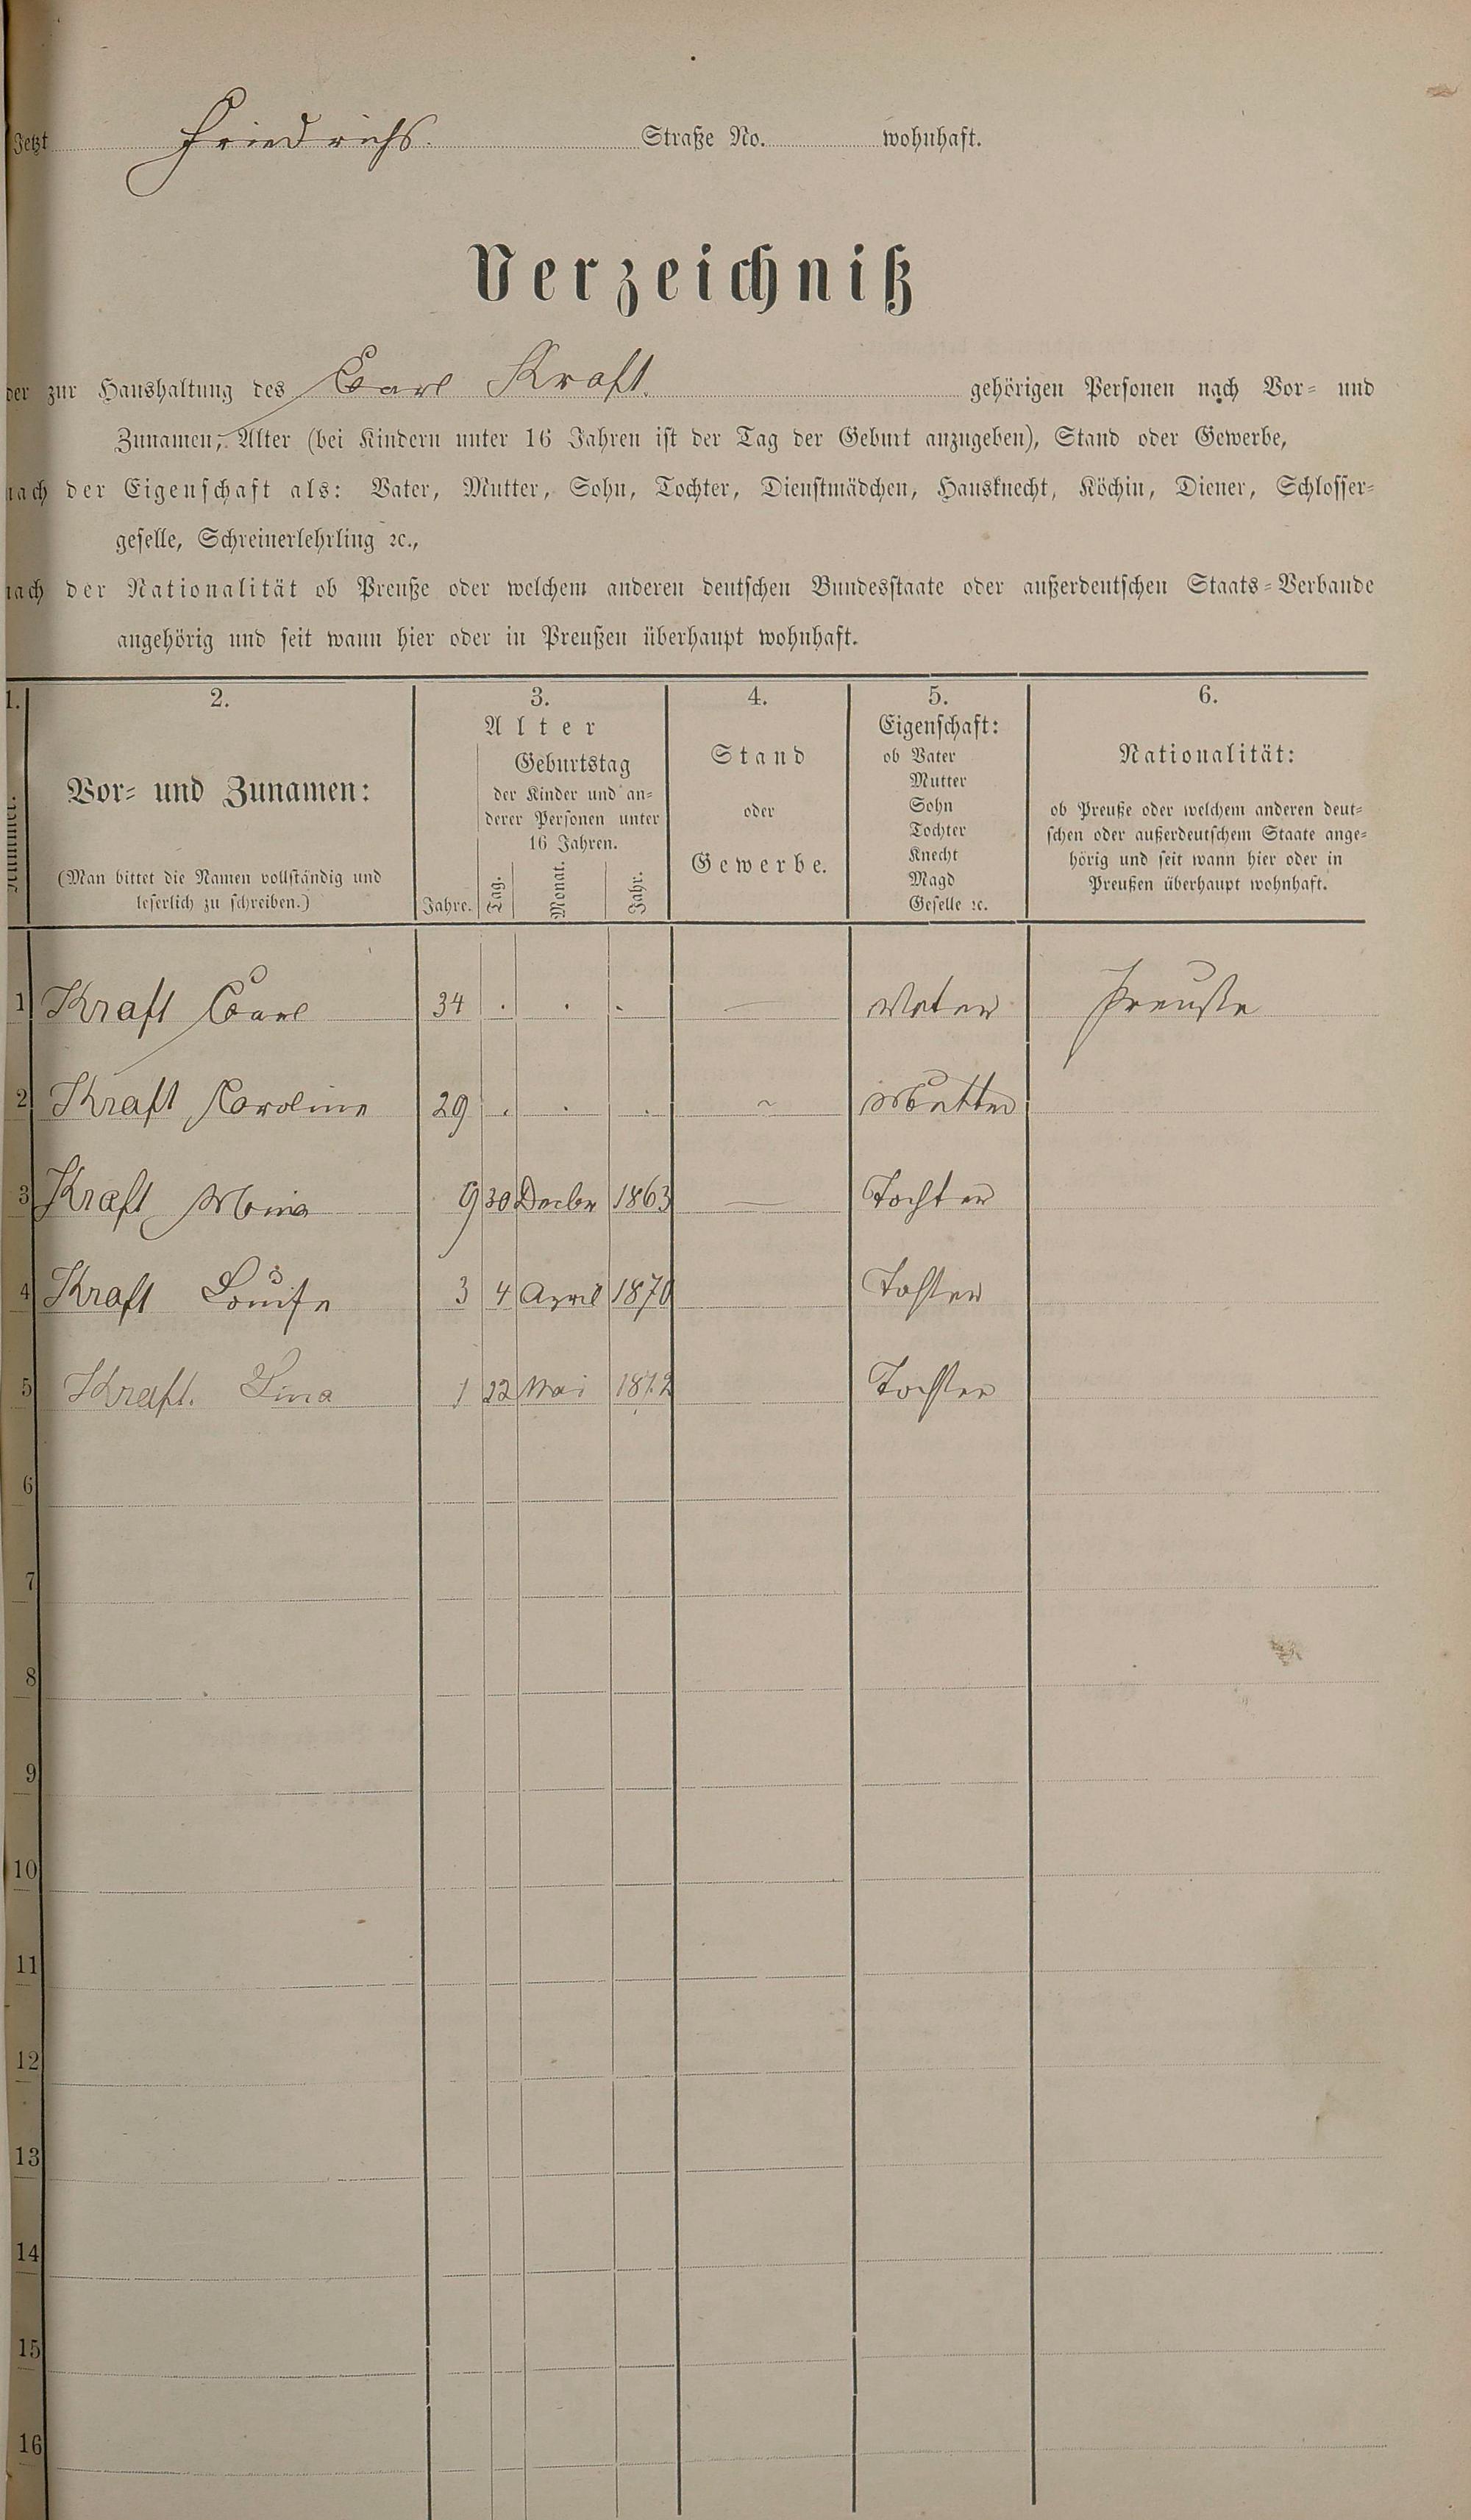 Jetzt Friedrichs. Straße No. wohnhaft.
Verzeichniß
der zur Haushaltung des Carl Kraft. gehörigen Personen nach Vor- und
Zunamen, Alter (bei Kindern unter 16 Jahren ist der Tag der Geburt anzugeben), Stand oder Gewerbe,
nach der Eigenschaft als: Vater, Mutter, Sohn, Tochter, Dienstmädchen, Hausknecht, Köchin, Diener, Schlosser-
geselle, Schreinerlehrling ꝛc.,
nach der Nationalität ob Preuße oder welchem anderen deutschen Bundesstaate oder außerdeutschen Staats-Verbande
angehörig und seit wann hier oder in Preußen überhaupt wohnhaft.
1. 2. 3. 4. 5. 6.
Nummer.
Vor- und Zunamen:
(Man bittet die Namen vollständig und
leserlich zu schreiben.)
Alter
Geburtstag
der Kinder und an-
derer Personen unter
16 Jahren.
Jahre. Tag. Monat. Jahr.
Stand
oder
Gewerbe.
Eigenschaft:
ob Vater
Mutter
Sohn
Tochter
Knecht
Magd
Geselle ꝛc.
Nationalität:
ob Preuße oder welchem anderen deut-
schen oder außerdeutschem Staate ange-
hörig und seit wann hier oder in
Preußen überhaupt wohnhaft.
1 Kraft Carl 34 . . . — Vater Preuße
2 Kraft Caroline 29 . . . ~ Mutter
3 Kraft Mina 9 30 Decbr 1863 — Tochter
4 Kraft Louise 3 4 April 1870 Tochter
5 Kraft. Lina 1 22 Mai 1872 Tochter
6
7
8
9
10
11
12
13
14
15
16